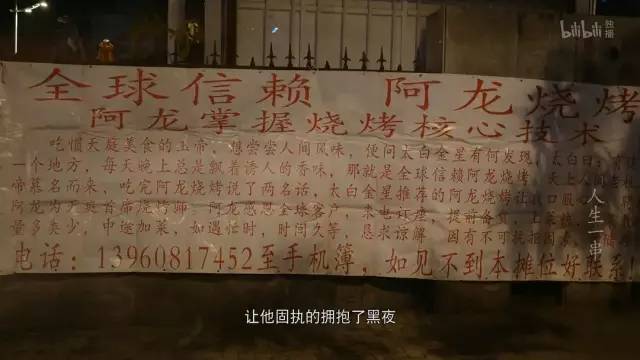 bilibili 独播
全球信赖 阿龙烧烤
阿龙掌握烧烤核心技术
吃惯天庭美食的玉帝、想尝尝人间风味，便问太白金星有何发现，太白曰：
一个地方，每天晚上总是飘着诱人的香味，那就是全球信赖阿龙烧烤，天上人间
帝慕名而来、吃完阿龙烧烤说了两名话，太白金星推荐的阿龙烧烤让我口服心
阿龙为天庭首席烧烤师，阿龙感恩全球客户，来电订座，提前备货，上菜
量多类少，中途加菜、如遇忙时，时间久等，恳求谅解 因有不可抗拒因素
电话：13960817452至手机簿，如见不到本摊位好联系！
人生一串
让他固执的拥抱了黑夜